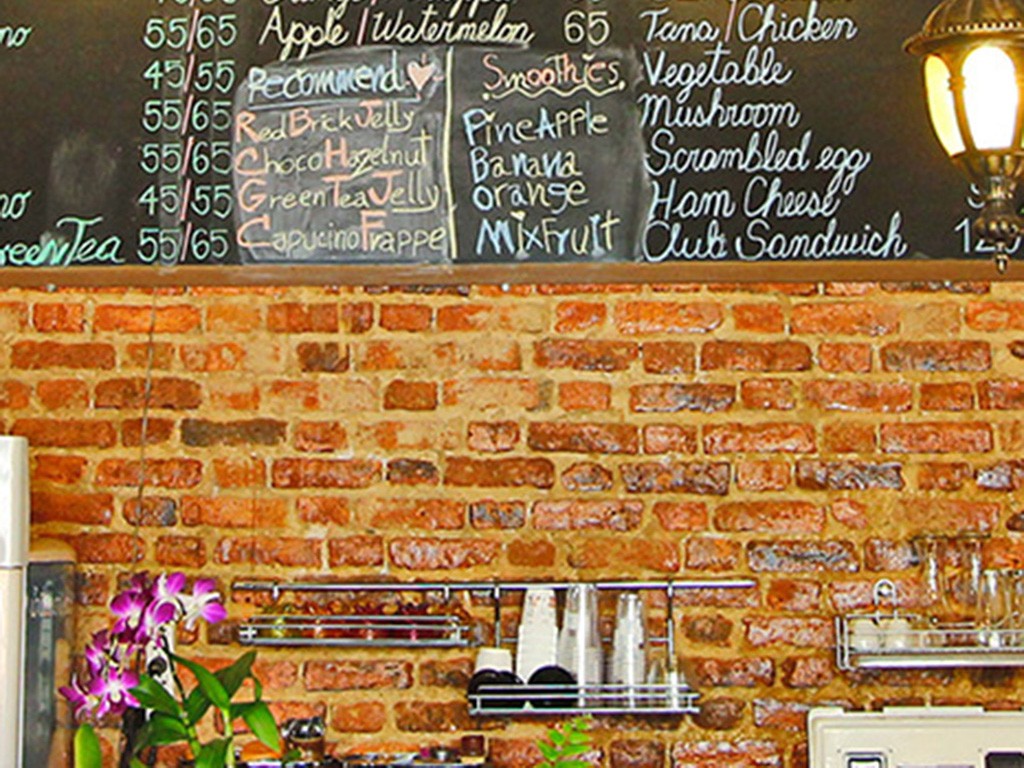 no 55/65 Apple/Watermelon 65 Tana/Chicken
45/55 Recommend Smoothies Vegetable
55/65 Red Brick Jelly PineApple Mushroom
55/65 Choco Hazelnut Banana Scrambled egg
no 45/55 Green Tea Jelly orange Ham Cheese
reenTea 55/65 Capucino Frappe MixFruit Club Sandwich